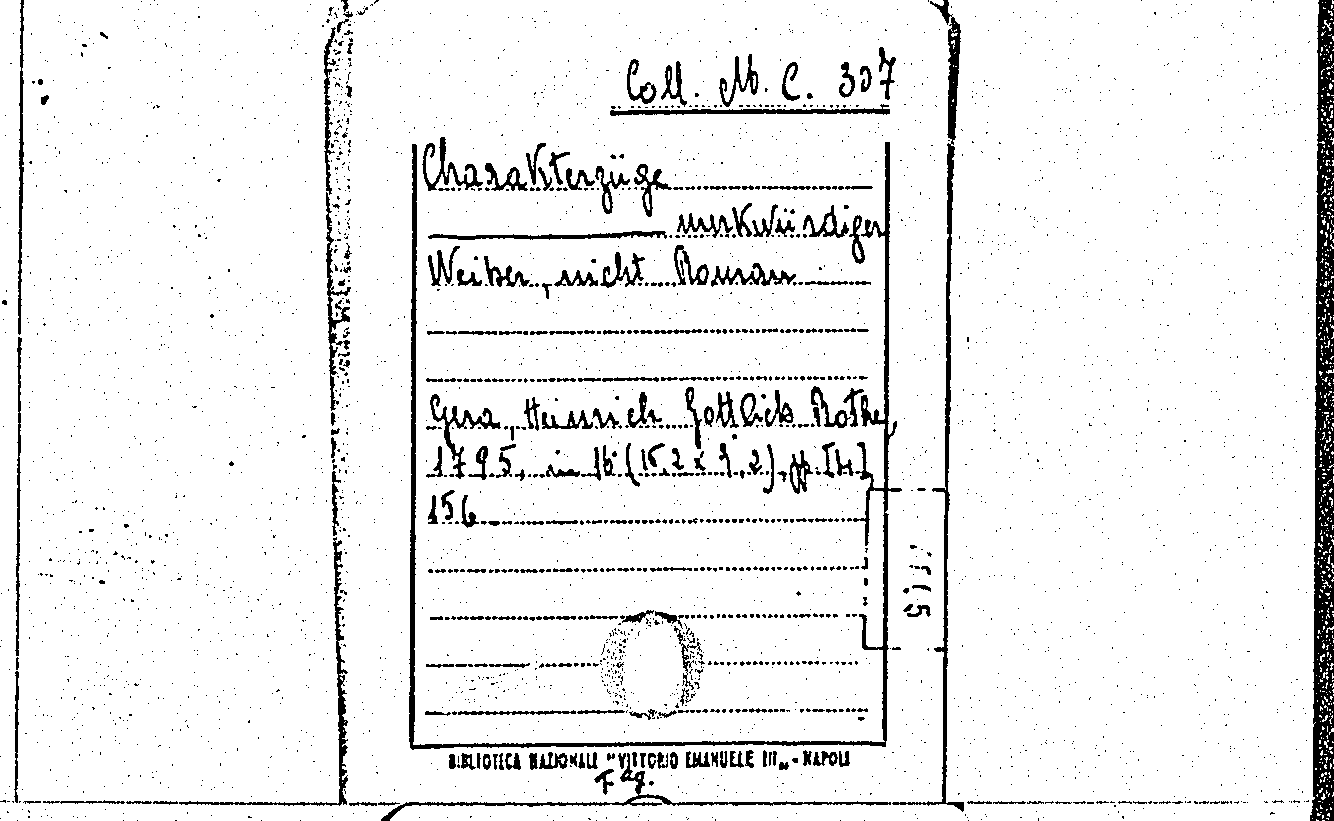 Coll. M. C. 307
Charakterzüge
merkwürdiger
Weiber, nicht Roman
Gera, Heinrich Gottlieb Rothe,
1795, in 16° (15,2 x 9,2), pp
156
BIBLIOTECA NAZIONALE "VITTORIO EMANUELE III„ - NAPOLI